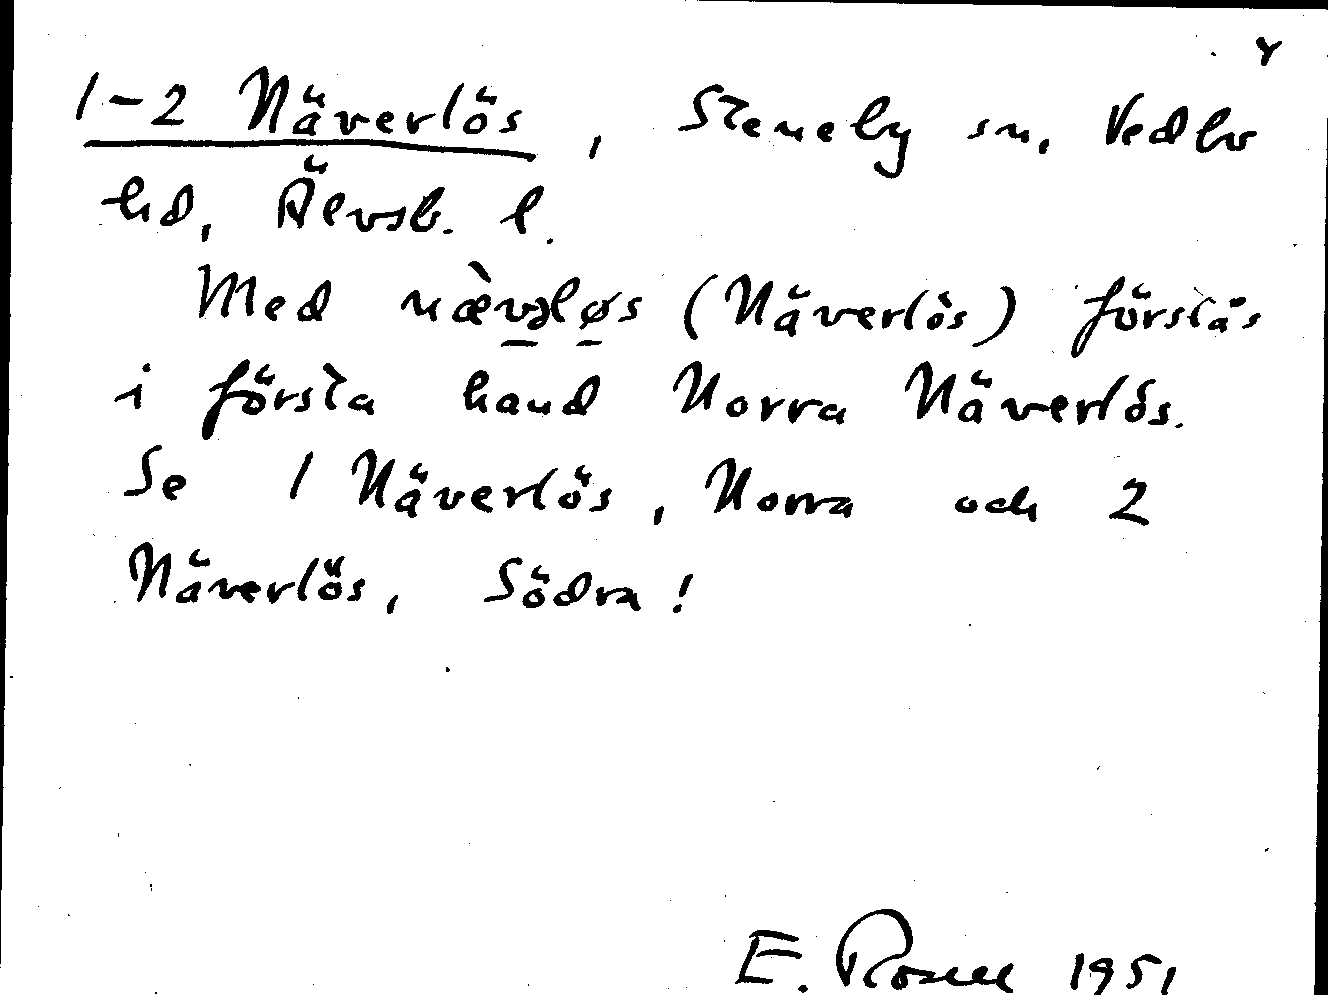 Y
1-2 Näverlös, Steneby sn, Vedbo
hd, Älvsb. l.
Med næ̀vəløs (Näverlös) förstås
i första hand Norra Näverlös.
Se 1 Näverlös, Norra och 2
Näverlös, Södra!
E. Rosell 1951